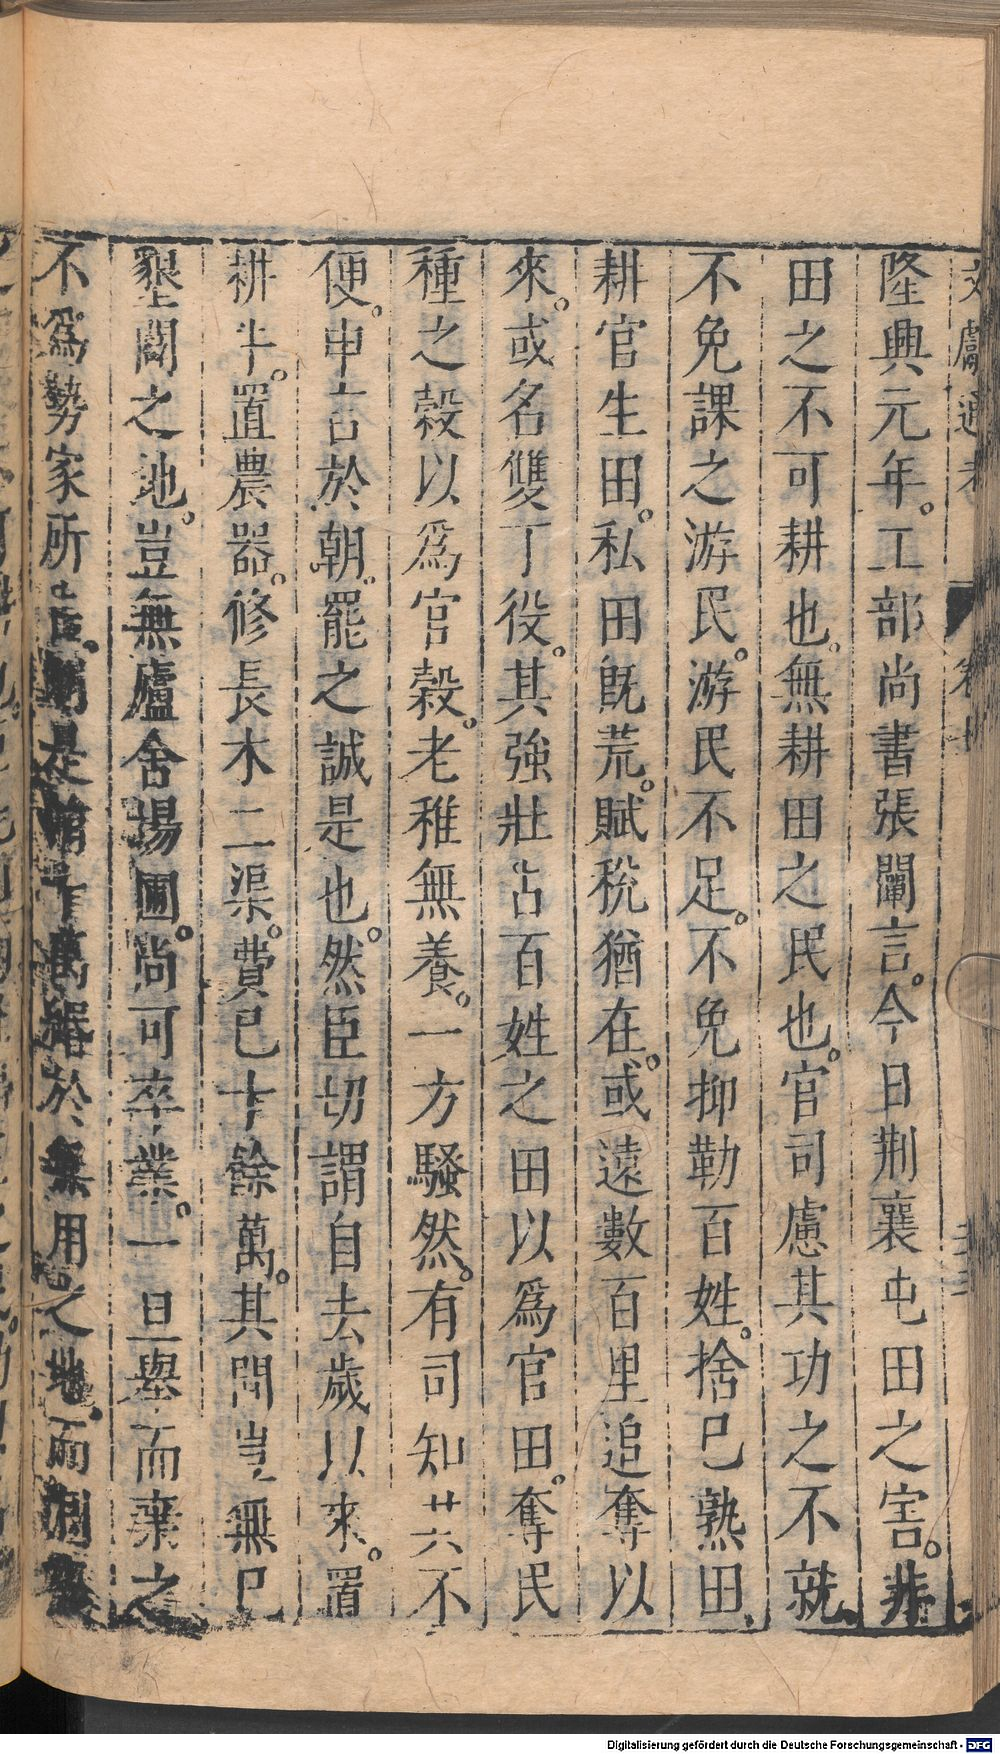 文獻通考 卷十
隆興元年。工部尚書張闡言。今日荆襄屯田之害。非
田之不可耕也。無耕田之民也。官司慮其功之不就、
不免課之游民。游民不足。不免抑勒百姓。捨巳熟田、
耕官生田。私田既荒。賦稅猶在。或遠數百里追奪以
來。或名雙丁役。其強壯占百姓之田以爲官田。奪民
種之穀以爲官穀。老稚無養。一方騷然。有司知其不
便。申言於朝。罷之誠是也。然臣切謂自去歲以來。置
耕牛。置農器。修長木二渠。費巳十餘萬。其間豈無巳
墾闢之地。豈無廬舍場圃。尚可卒業。一旦舉而棄之
不爲勢家所占。是 萬緡於無用之地、而
Digitalisierung gefördert durch die Deutsche Forschungsgemeinschaft - DFG